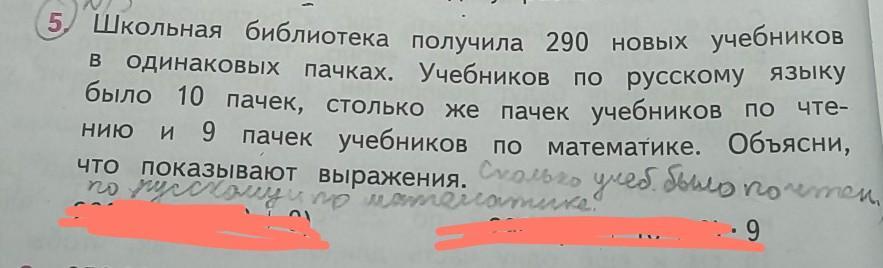 5. Школьная библиотека получила 290 новых учебников
в одинаковых пачках. Учебников по русскому языку
было 10 пачек, столько же пачек учебников по чте-
нию и 9 пачек учебников по математике. Объясни,
что показывают выражения. Сколько учеб. было по чтен.
по русскому и по математике.
· 9